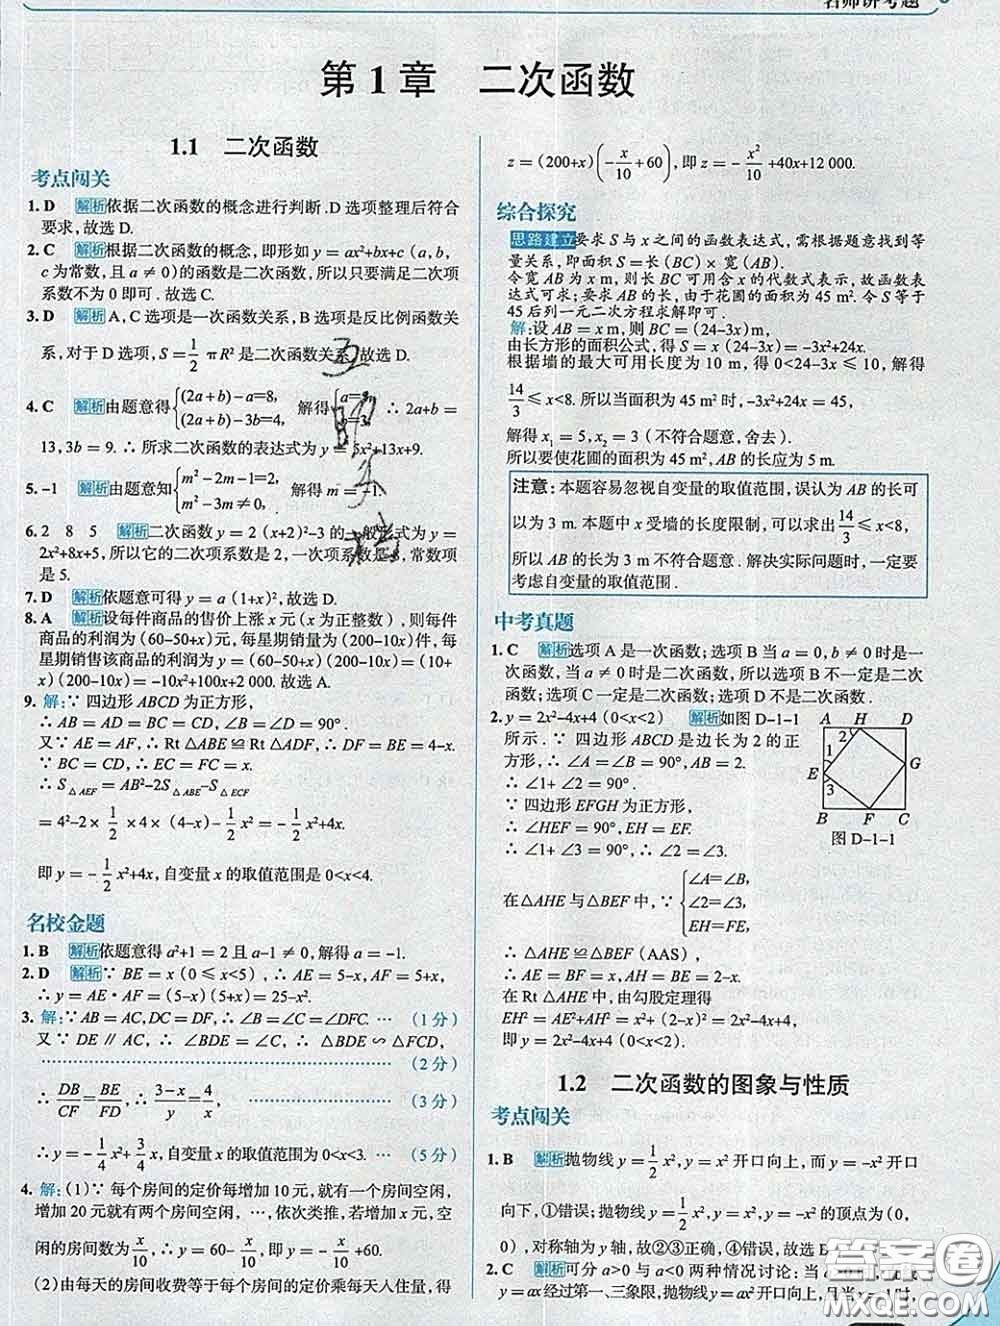 名师讲考题
第1章 二次函数
1.1 二次函数
考点闯关
1. D 解析 依据二次函数的概念进行判断.D选项整理后符合
要求,故选D.
2. C 解析 根据二次函数的概念,即形如 y=ax²+bx+c(a,b,
c为常数,且a≠0)的函数是二次函数,所以只要满足二次项
系数不为0即可.故选C.
3. D 解析 A,C选项是一次函数关系,B选项是反比例函数关
系,对于D选项,S=1/2 πR²是二次函数关系.故选D.
4. C 解析 由题意得{(2a+b)-a=8, (2a+b)-3b=4, 解得{a=3, b=3. ∴2a+b=
13,3b=9.∴所求二次函数的表达式为y=5x²+13x+9.
5. -1 解析 由题意知{m²-2m-1=2, m²-3m≠0, 解得m=-1.
6. 2 8 5 解析 二次函数y=2(x+2)²-3的一般形式为y=
2x²+8x+5,所以它的二次项系数是2,一次项系数是8,常数项
是5.
7. D 解析 依题意可得y=a(1+x)²,故选D.
8. A 解析 设每件商品的售价上涨x元(x为正整数),则每件
商品的利润为(60-50+x)元,每星期销量为(200-10x)件,每
星期销售该商品的利润为y=(60-50+x)(200-10x)=(10+
x)(200-10x)=-10x²+100x+2 000.故选A.
9. 解:∵四边形ABCD为正方形,
∴AB=AD=BC=CD,∠B=∠D=90°.
又∵AE=AF,∴Rt△ABE≌Rt△ADF,∴DF=BE=4-x.
∵BC=CD,∴EC=FC=x.
∴S△AEF=AB²-2S△ABE-S△ECF
=4²-2×1/2×4×(4-x)-1/2x²=-1/2x²+4x.
即y=-1/2x²+4x,自变量x的取值范围是0<x<4.
名校金题
1. B 解析 依题意得a²+1=2且a-1≠0,解得a=-1.
2. D 解析 ∵BE=x(0≤x<5),∴AE=5-x,AF=5+x,
∴y=AE·AF=(5-x)(5+x)=25-x².
3. 解:∵AB=AC,DC=DF,∴∠B=∠C=∠DFC. … (1分)
又∵DE∥AC,∴∠BDE=∠C.∴△BDE∽△FCD,
…………… (2分)
∴DB/CF=BE/FD,∴(3-x)/y=4/x, …………… (3分)
∴y=-1/4x²+3/4x,自变量x的取值范围是0<x<3. … (5分)
4. 解:(1)∵每个房间的定价每增加10元,就有一个房间空闲,
增加20元就有两个房间空闲,…,依次类推,若增加x元,空
闲的房间数为x/10,∴y=60-x/10,即y=-x/10+60.
(2)由每天的房间收费等于每个房间的定价乘每天入住量,得
z=(200+x)(-x/10+60),即z=-x²/10+40x+12 000.
综合探究
思路建立 要求S与x之间的函数表达式,需根据题意找到等
量关系,即面积S=长(BC)×宽(AB).
令宽AB为x m,则长BC可用含x的代数式表示,故函数表
达式可求;要求AB的长,由于花圃的面积为45 m²,令S等于
45后列一元二次方程求解即可.
解:设AB=x m,则BC=(24-3x)m,
由长方形的面积公式,得S=x(24-3x)=-3x²+24x.
根据墙的最大可用长度为10 m,得0<24-3x≤10,解得
14/3≤x<8.所以当面积为45 m²时,-3x²+24x=45,
解得x₁=5,x₂=3(不符合题意,舍去).
所以要使花圃的面积为45 m²,AB的长应为5 m.
注意:本题容易忽视自变量的取值范围,误认为AB的长可
以为3 m.本题中x受墙的长度限制,可以求出14/3≤x<8,
所以AB的长为3 m不符合题意.解决实际问题时,一定要
考虑自变量的取值范围.
中考真题
1. C 解析 选项A是一次函数;选项B当a=0,b≠0时是一
次函数,当a≠0时是二次函数,所以选项B不一定是二次函
数;选项C一定是二次函数;选项D不是二次函数.
2. y=2x²-4x+4(0<x<2) 解析 如图D-1-1
所示.∵四边形ABCD是边长为2的正
方形,∴∠A=∠B=90°,AB=2.
∴∠1+∠2=90°.
∵四边形EFGH为正方形,
∴∠HEF=90°,EH=EF.
∴∠1+∠3=90°.∴∠2=∠3.
在△AHE与△BEF中,∵{∠A=∠B, ∠2=∠3, EH=FE,
∴△AHE≌△BEF(AAS).
∴AE=BF=x,AH=BE=2-x.
在Rt△AHE中,由勾股定理得
EH²=AE²+AH²=x²+(2-x)²=2x²-4x+4,
即y=2x²-4x+4(0<x<2).
A H D
2
1
E
3
G
B F C
图D-1-1
1.2 二次函数的图象与性质
考点闯关
1. B 解析 抛物线y=1/2x²,y=x²开口向上,而y=-x²开口
向下,①错误;抛物线y=1/2x²,y=x²,y=-x²的顶点为(0,
0),对称轴为y轴,故②③正确,④错误,故选B.
2. C 解析 可分a>0与a<0两种情况讨论:当a>0时,
y=ax经过第一、三象限,抛物线y=ax²开口向上,且当x=1时,
答案圈
MXQE.COM